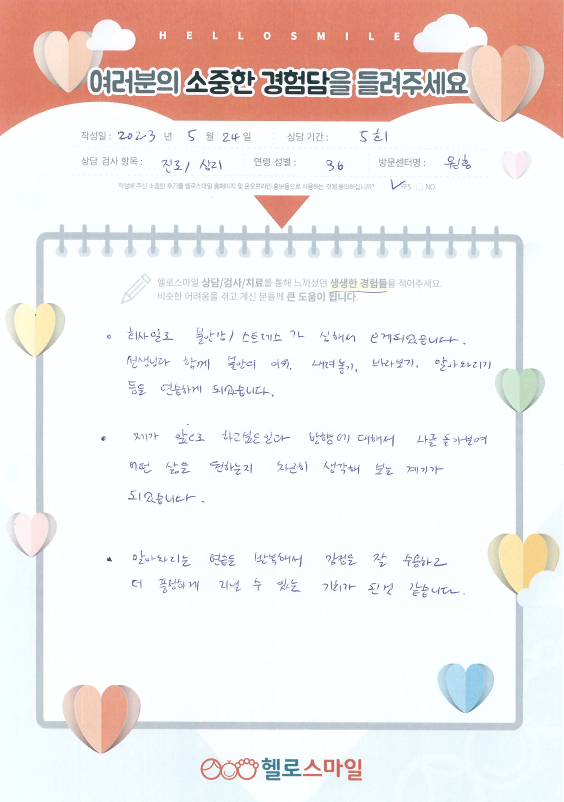 HELLOSMILE
여러분의 소중한 경험담을 들려주세요
작성일 : 2023 년 5 월 24일 상담 기간 : 5회
상담 검사 항목 : 진로/심리 연령 성별 : 36 방문센터명 : 원흥
작성해 주신 소중한 후기를 헬로스마일 홈페이지 및 온오프라인 홍보용으로 사용하는 것에 동의하십니까? YES NO
헬로스마일 상담/검사/치료를 통해 느끼셨던 생생한 경험들을 적어주세요.
비슷한 어려움을 겪고 계신 분들께 큰 도움이 됩니다.
회사일로 불안감/스트레스가 심해서 오게되었습니다.
선생님과 함께 불안의 이유, 내려놓기, 바라보기, 알아차리기
등을 연습하게 되었습니다.
제가 앞으로 하고싶은일과 방향에 대해서 나를 돌아보며
어떤 삶을 원하는지 차근히 생각해 보는 계기가
되었습니다.
알아차리는 연습을 반복해서 감정을 잘 수용하고
더 풍성하게 지낼 수 있는 기회가 된것 같습니다.
헬로스마일